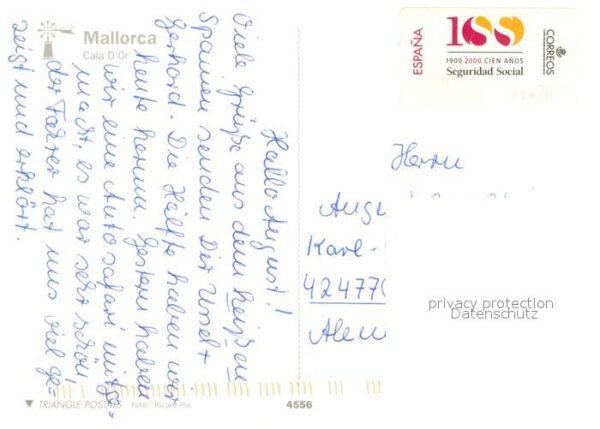 Mallorca
Cala D'Or
Hallo August!
Viele Grüße aus dem heißen
Spanien senden Dir Ursel +
Gerhard. Die Hälfte haben wir
heute herum. Gestern haben
wir eine Autosafari mitge-
macht, es war sehr schön!
der Fahrer hat uns viel ge=
zeigt und erklärt.
ESPAÑA
100
1900 2000 CIEN AÑOS
Seguridad Social
CORREOS
Herrn
Karl-
privacy protection
Datenschutz
TRIANGLE POSTALS Foto: Ricard Pla
4556